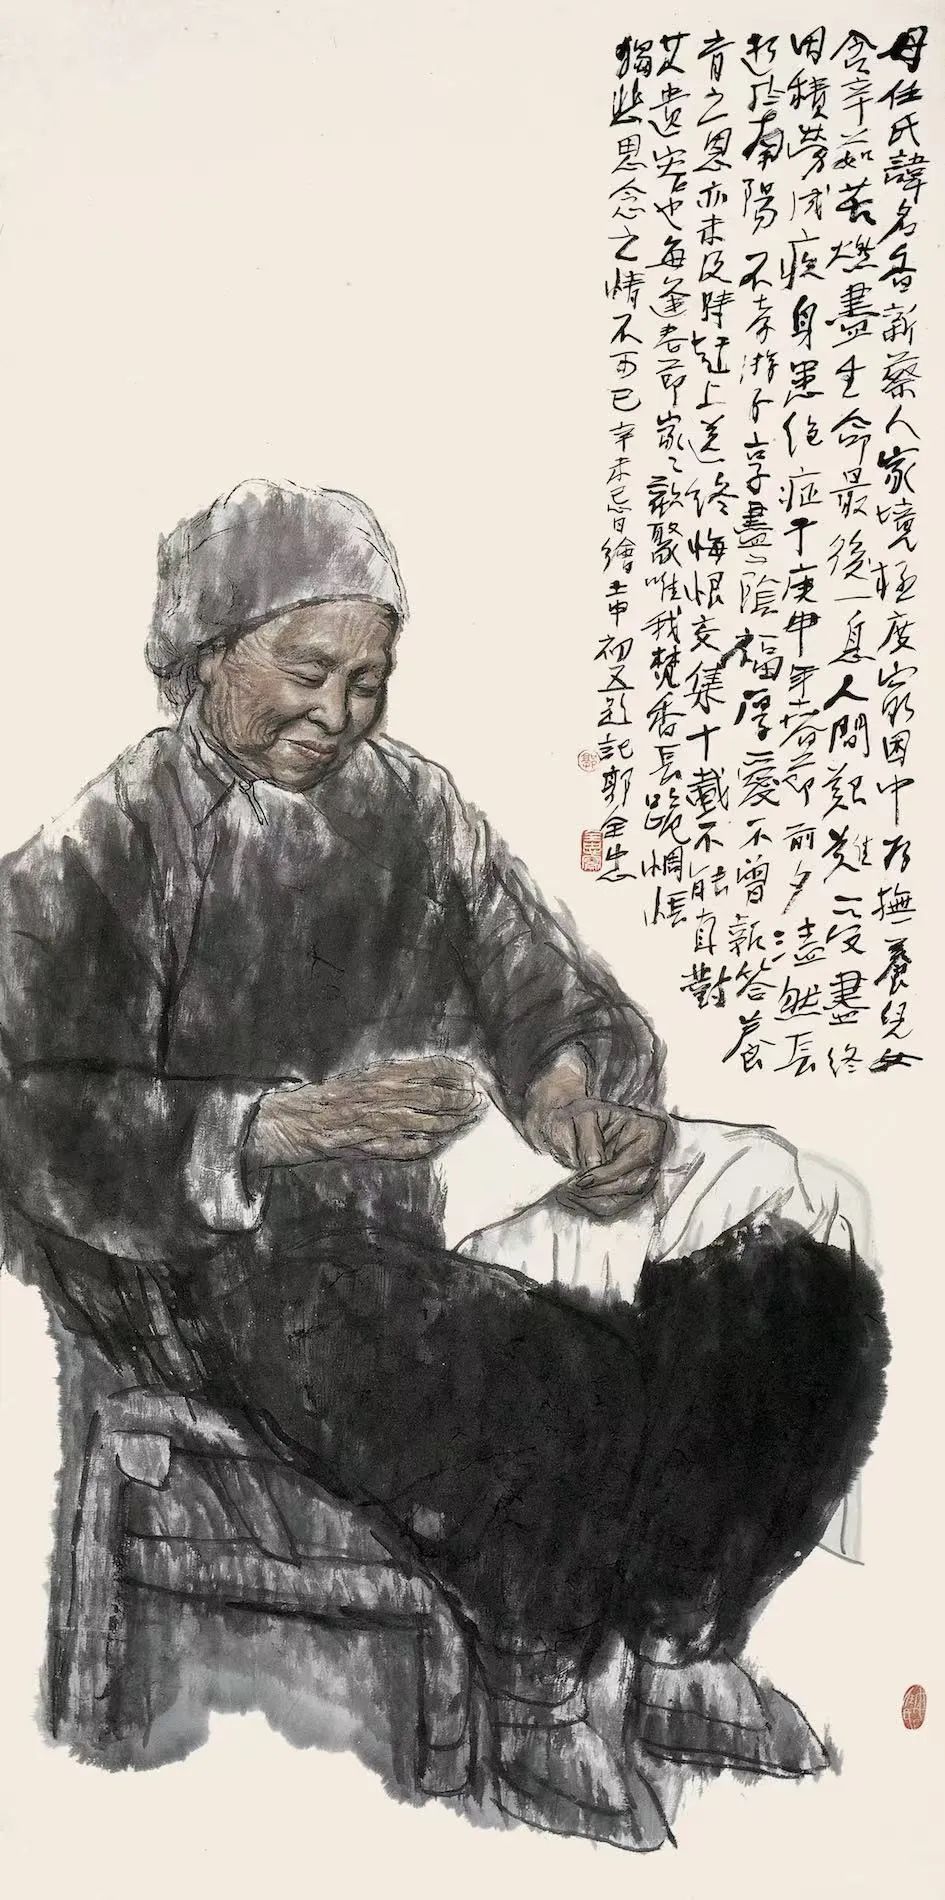 母任氏諱名香新蔡人家境極度窮困中為撫養兒女
含辛茹苦燃盡生命最後一息人間艱難一一受盡終
因積勞成疾身患絕症于庚申年春節前夕溘然長
逝於南陽不孝游子享盡蔭福厚愛不曾報答養
育之恩亦未及時趕上送終悔恨交集十載不能自對
艾遺容也每逢春節家家歡聚唯我焚香長跪惆悵
獨悲思念之情不可已辛未忌日繪壬申初五題記郭全忠